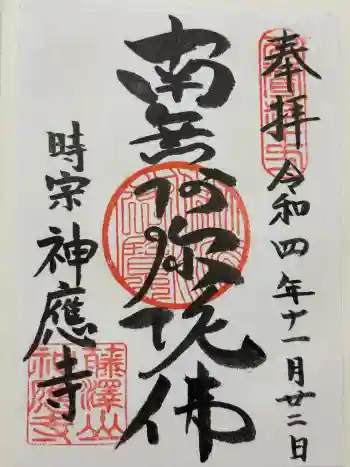 奉拝
令和四年十一月廿二日
南無阿弥陀佛
時宗
神應寺
藤澤山
神應寺